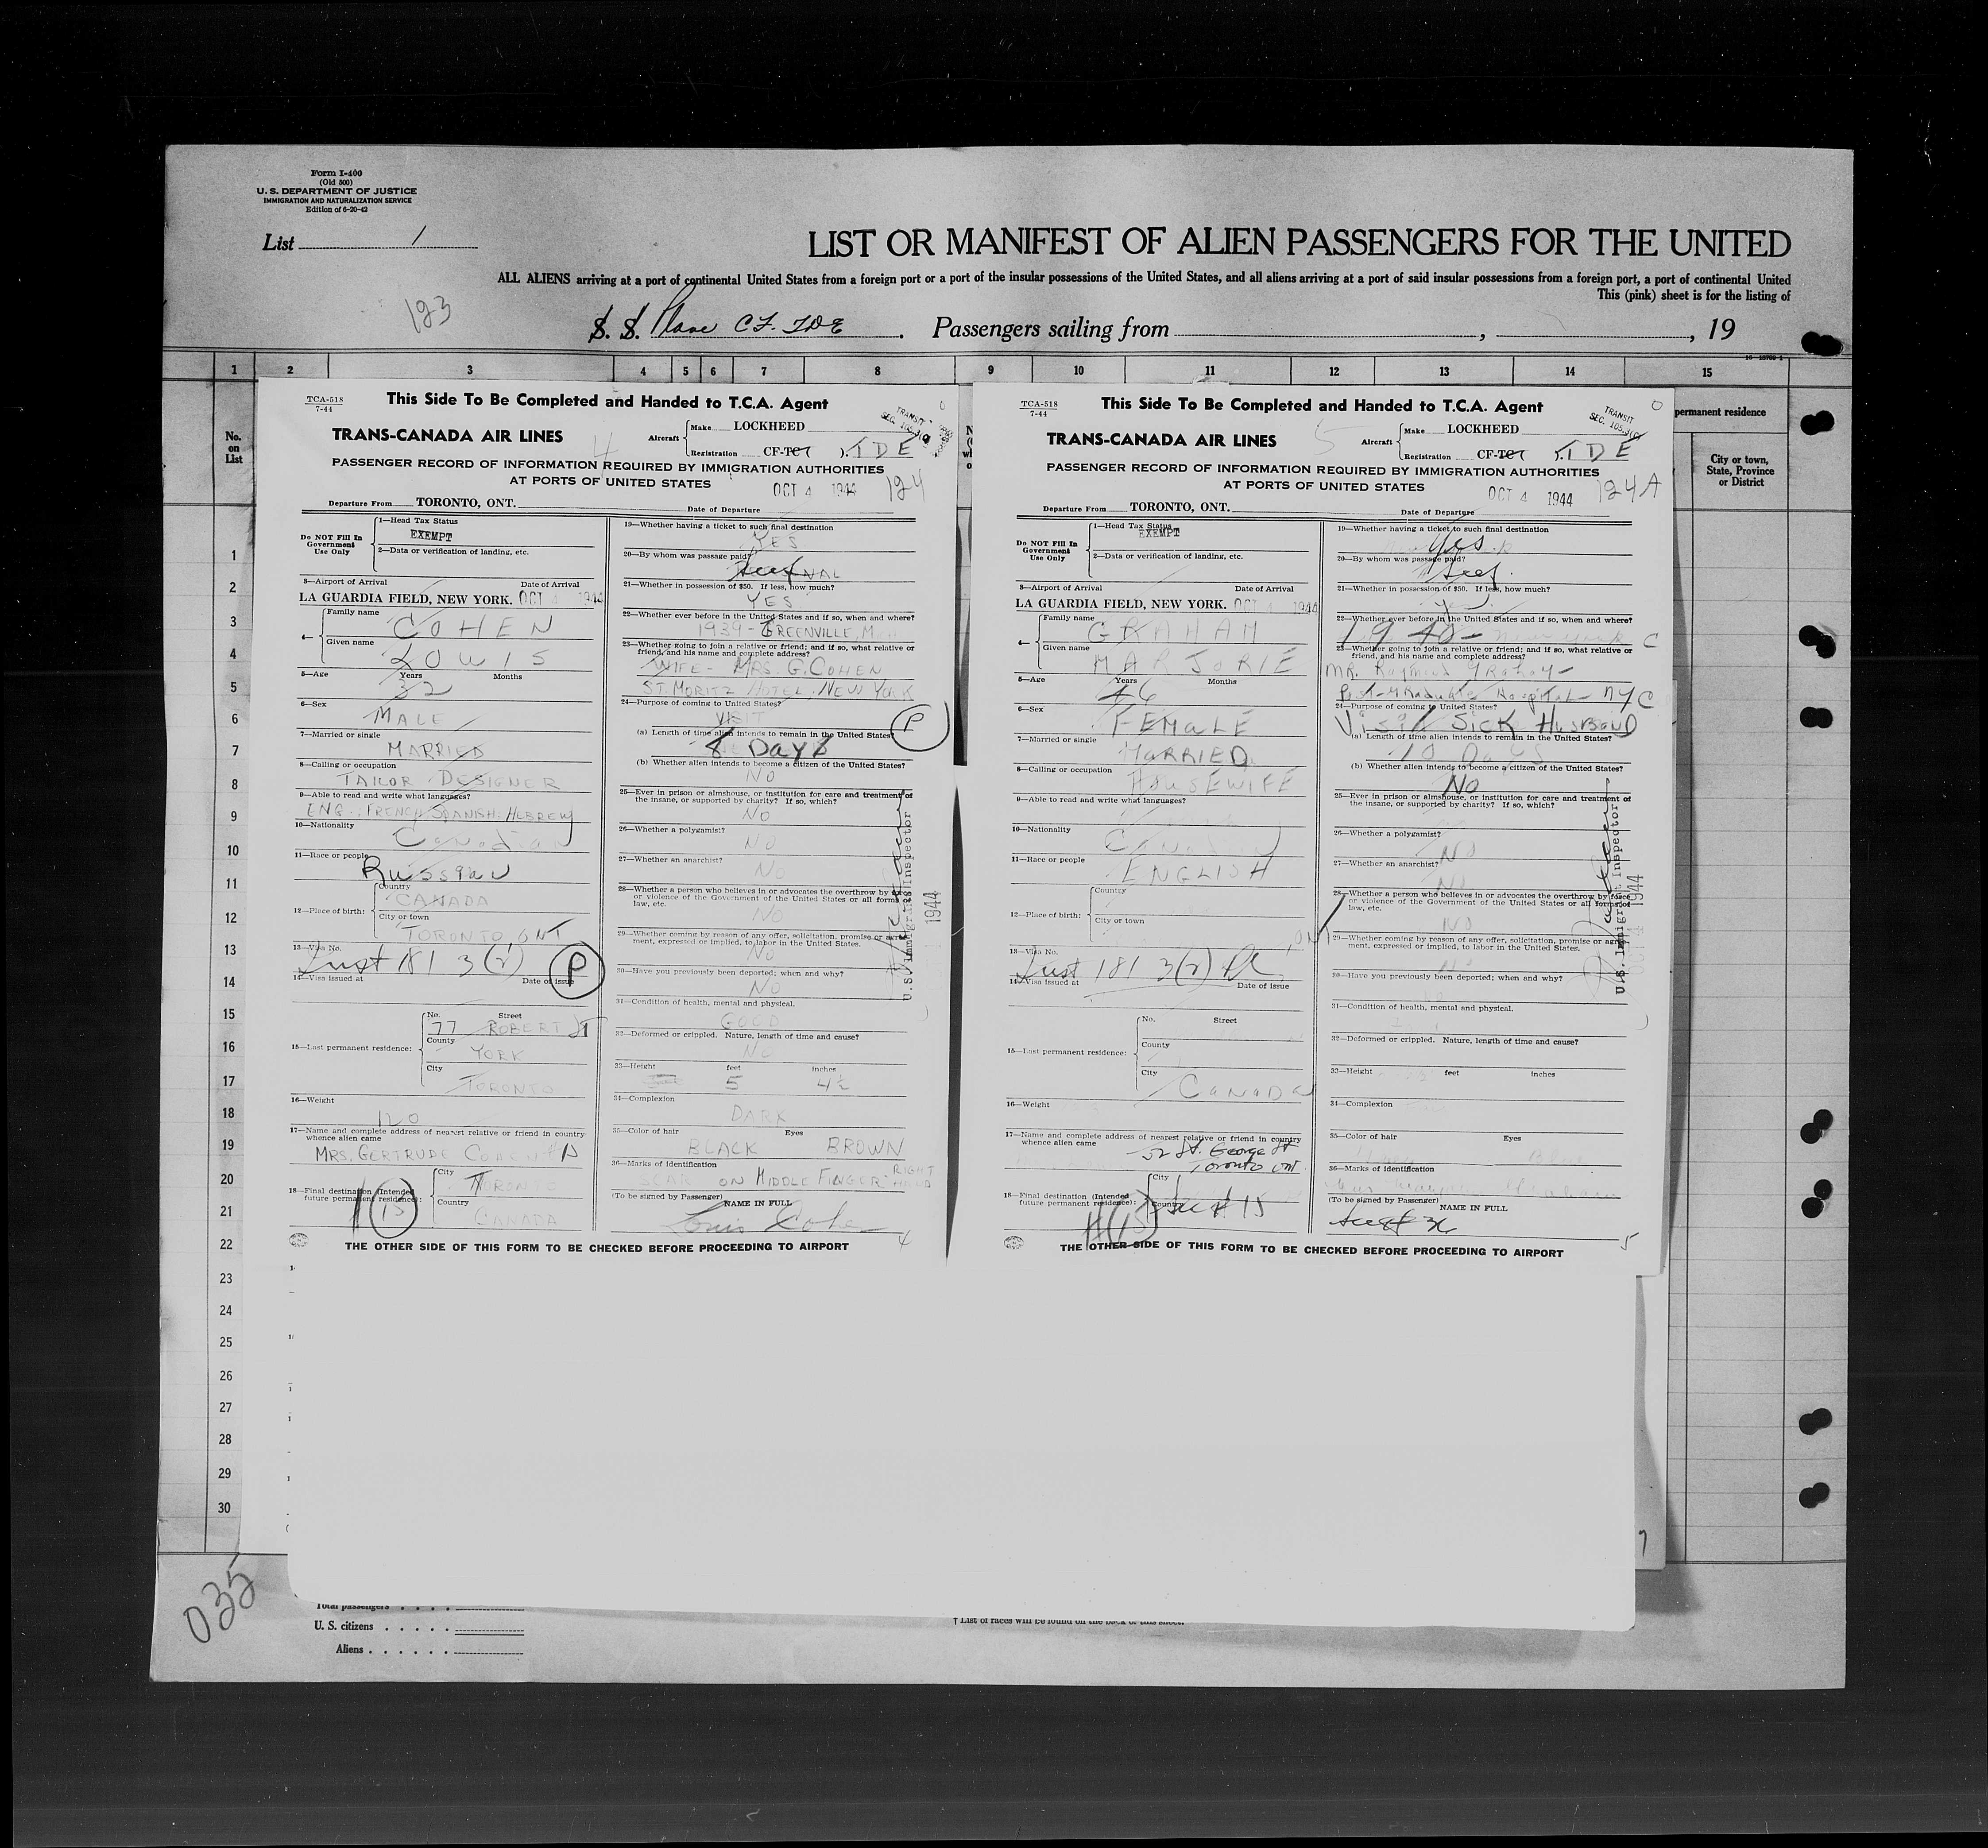 Form I-400
(Old 500)
U. S. DEPARTMENT OF JUSTICE
IMMIGRATION AND NATURALIZATION SERVICE
Edition of 6-20-42
List 1
LIST OR MANIFEST OF ALIEN PASSENGERS FOR THE UNITED
ALL ALIENS arriving at a port of continental United States from a foreign port or a port of the insular possessions of the United States, and all aliens arriving at a port of said insular possessions from a foreign port, a port of continental United
This (pink) sheet is for the listing of
123
S. S. Plane CF. TDE. Passengers sailing from , , 19
1 2 3 4 5 6 7 8 9 10 11 12 13 14 15
No. on List
permanent residence
City or town, State, Province or District
TCA-518
7-44
This Side To Be Completed and Handed to T.C.A. Agent
TRANSIT
TRANS-CANADA AIR LINES
4
Aircraft
Make LOCKHEED
Registration CF-TCT ). TDE
PASSENGER RECORD OF INFORMATION REQUIRED BY IMMIGRATION AUTHORITIES
AT PORTS OF UNITED STATES
OCT 4 1944 124
Departure From TORONTO, ONT. Date of Departure
Do NOT Fill In Government Use Only
1—Head Tax Status
EXEMPT
2—Data or verification of landing, etc.
3—Airport of Arrival Date of Arrival
LA GUARDIA FIELD, NEW YORK. OCT 4 1944
4— Family name
COHEN
Given name
LOUIS
5—Age Years Months
32
6—Sex
MALE
7—Married or single
MARRIED
8—Calling or occupation
TAILOR DESIGNER
9—Able to read and write what languages?
ENG. FRENCH SPANISH. HEBREW
10—Nationality
Canadian
11—Race or people
Russian
12—Place of birth: Country
CANADA
City or town
TORONTO, ONT
13—Visa No.
181 3(2) P
14—Visa issued at Date of issue
15—Last permanent residence: No. Street
77 ROBERT ST
County
YORK
City
TORONTO
16—Weight
120
17—Name and complete address of nearest relative or friend in country whence alien came
MRS. GERTRUDE COHEN # 15
18—Final destination (Intended future permanent residence): City
TORONTO
Country
CANADA
#15
19—Whether having a ticket to such final destination
YES
20—By whom was passage paid?
Self
21—Whether in possession of $50. If less, how much?
YES
22—Whether ever before in the United States and if so, when and where?
1939 - GREENVILLE, M
23—Whether going to join a relative or friend; and if so, what relative or friend, and his name and complete address?
WIFE - MRS. G. COHEN
ST. MORITZ HOTEL. NEW YORK
24—Purpose of coming to United States?
VISIT
P
(a) Length of time alien intends to remain in the United States?
8 Days
(b) Whether alien intends to become a citizen of the United States?
NO
25—Ever in prison or almshouse, or institution for care and treatment of the insane, or supported by charity? If so, which?
NO
26—Whether a polygamist?
NO
27—Whether an anarchist?
NO
28—Whether a person who believes in or advocates the overthrow by force or violence of the Government of the United States or all forms of law, etc.
NO
29—Whether coming by reason of any offer, solicitation, promise or agreement, expressed or implied, to labor in the United States.
NO
30—Have you previously been deported; when and why?
NO
31—Condition of health, mental and physical.
GOOD
32—Deformed or crippled. Nature, length of time and cause?
NO
33—Height feet inches
5 4½
34—Complexion
DARK
35—Color of hair Eyes
BLACK BROWN
36—Marks of identification
SCAR ON MIDDLE FINGER RIGHT HAND
(To be signed by Passenger) NAME IN FULL
Louis Cohen
4
U.S. Immigrant Inspector
1944
THE OTHER SIDE OF THIS FORM TO BE CHECKED BEFORE PROCEEDING TO AIRPORT
TCA-518
7-44
This Side To Be Completed and Handed to T.C.A. Agent
TRANSIT
TRANS-CANADA AIR LINES
5
Aircraft
Make LOCKHEED
Registration CF-TCT ). TDE
PASSENGER RECORD OF INFORMATION REQUIRED BY IMMIGRATION AUTHORITIES
AT PORTS OF UNITED STATES
OCT 4 1944 124A
Departure From TORONTO, ONT. Date of Departure
Do NOT Fill In Government Use Only
1—Head Tax Status
EXEMPT
2—Data or verification of landing, etc.
3—Airport of Arrival Date of Arrival
LA GUARDIA FIELD, NEW YORK. OCT 4 1944
4— Family name
GRAHAM
Given name
MARJORIE
5—Age Years Months
46
6—Sex
FEMALE
7—Married or single
MARRIED
8—Calling or occupation
HOUSEWIFE
9—Able to read and write what languages?
10—Nationality
Canadian
11—Race or people
ENGLISH
12—Place of birth: Country
City or town
ONT
13—Visa No.
181 3(2)
14—Visa issued at Date of issue
15—Last permanent residence: No. Street
County
City
CANADA
16—Weight
17—Name and complete address of nearest relative or friend in country whence alien came
52 St. George St
Toronto Ont.
18—Final destination (Intended future permanent residence): City
Country
# 15
#15
19—Whether having a ticket to such final destination
Yes
20—By whom was passage paid?
Self.
21—Whether in possession of $50. If less, how much?
Yes
22—Whether ever before in the United States and if so, when and where?
1940 - New York C
23—Whether going to join a relative or friend; and if so, what relative or friend, and his name and complete address?
MR. Raymond Graham -
Post-Graduate Hospital - NYC
24—Purpose of coming to United States?
Visit Sick Husband
(a) Length of time alien intends to remain in the United States?
10 Days
(b) Whether alien intends to become a citizen of the United States?
No
25—Ever in prison or almshouse, or institution for care and treatment of the insane, or supported by charity? If so, which?
26—Whether a polygamist?
No
27—Whether an anarchist?
No
28—Whether a person who believes in or advocates the overthrow by force or violence of the Government of the United States or all forms of law, etc.
No
29—Whether coming by reason of any offer, solicitation, promise or agreement, expressed or implied, to labor in the United States.
30—Have you previously been deported; when and why?
31—Condition of health, mental and physical.
32—Deformed or crippled. Nature, length of time and cause?
33—Height feet inches
34—Complexion
35—Color of hair Eyes
36—Marks of identification
(To be signed by Passenger) NAME IN FULL
5
U.S. Immigrant Inspector
1944
THE OTHER SIDE OF THIS FORM TO BE CHECKED BEFORE PROCEEDING TO AIRPORT
1
2
3
4
5
6
7
8
9
10
11
12
13
14
15
16
17
18
19
20
21
22
23
24
25
26
27
28
29
30
035
Total passengers
U. S. citizens
Aliens
† List of races will be found on the back of this sheet.